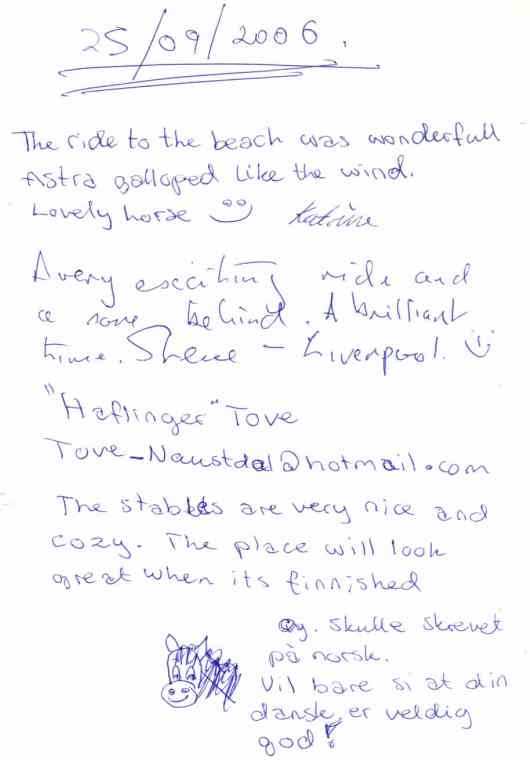 25/09/2006.
The ride to the beach was wonderfull
Astra galloped like the wind.
Lovely horse Katrine
A very exciting ride and
a sore behind. A brilliant
time. – Liverpool.
"Haflinger" Tove
Tove_Naustdal@hotmail.com
The stables are very nice and
cozy. The place will look
great when its finnished
Oy. skulle skrevet
på norsk.
Vil bare si at din
dansk er veldig
god!